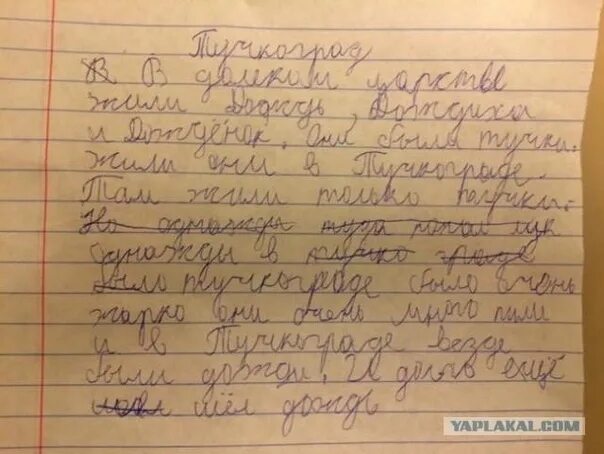 Тучкоград
В В далеком царстве
жили Дождь, Дождиха
и Дождёнок. Они были тучки.
Жили они в Тучкограде.
Там жили только тучки.
Но однажды туда попал
однажды в тучко граде
было тучкограде было очень
жарко они очень много пили
и в Тучкограде везде
были дожди. И долго ещё
шёл дождь
YAPLAKAL.COM